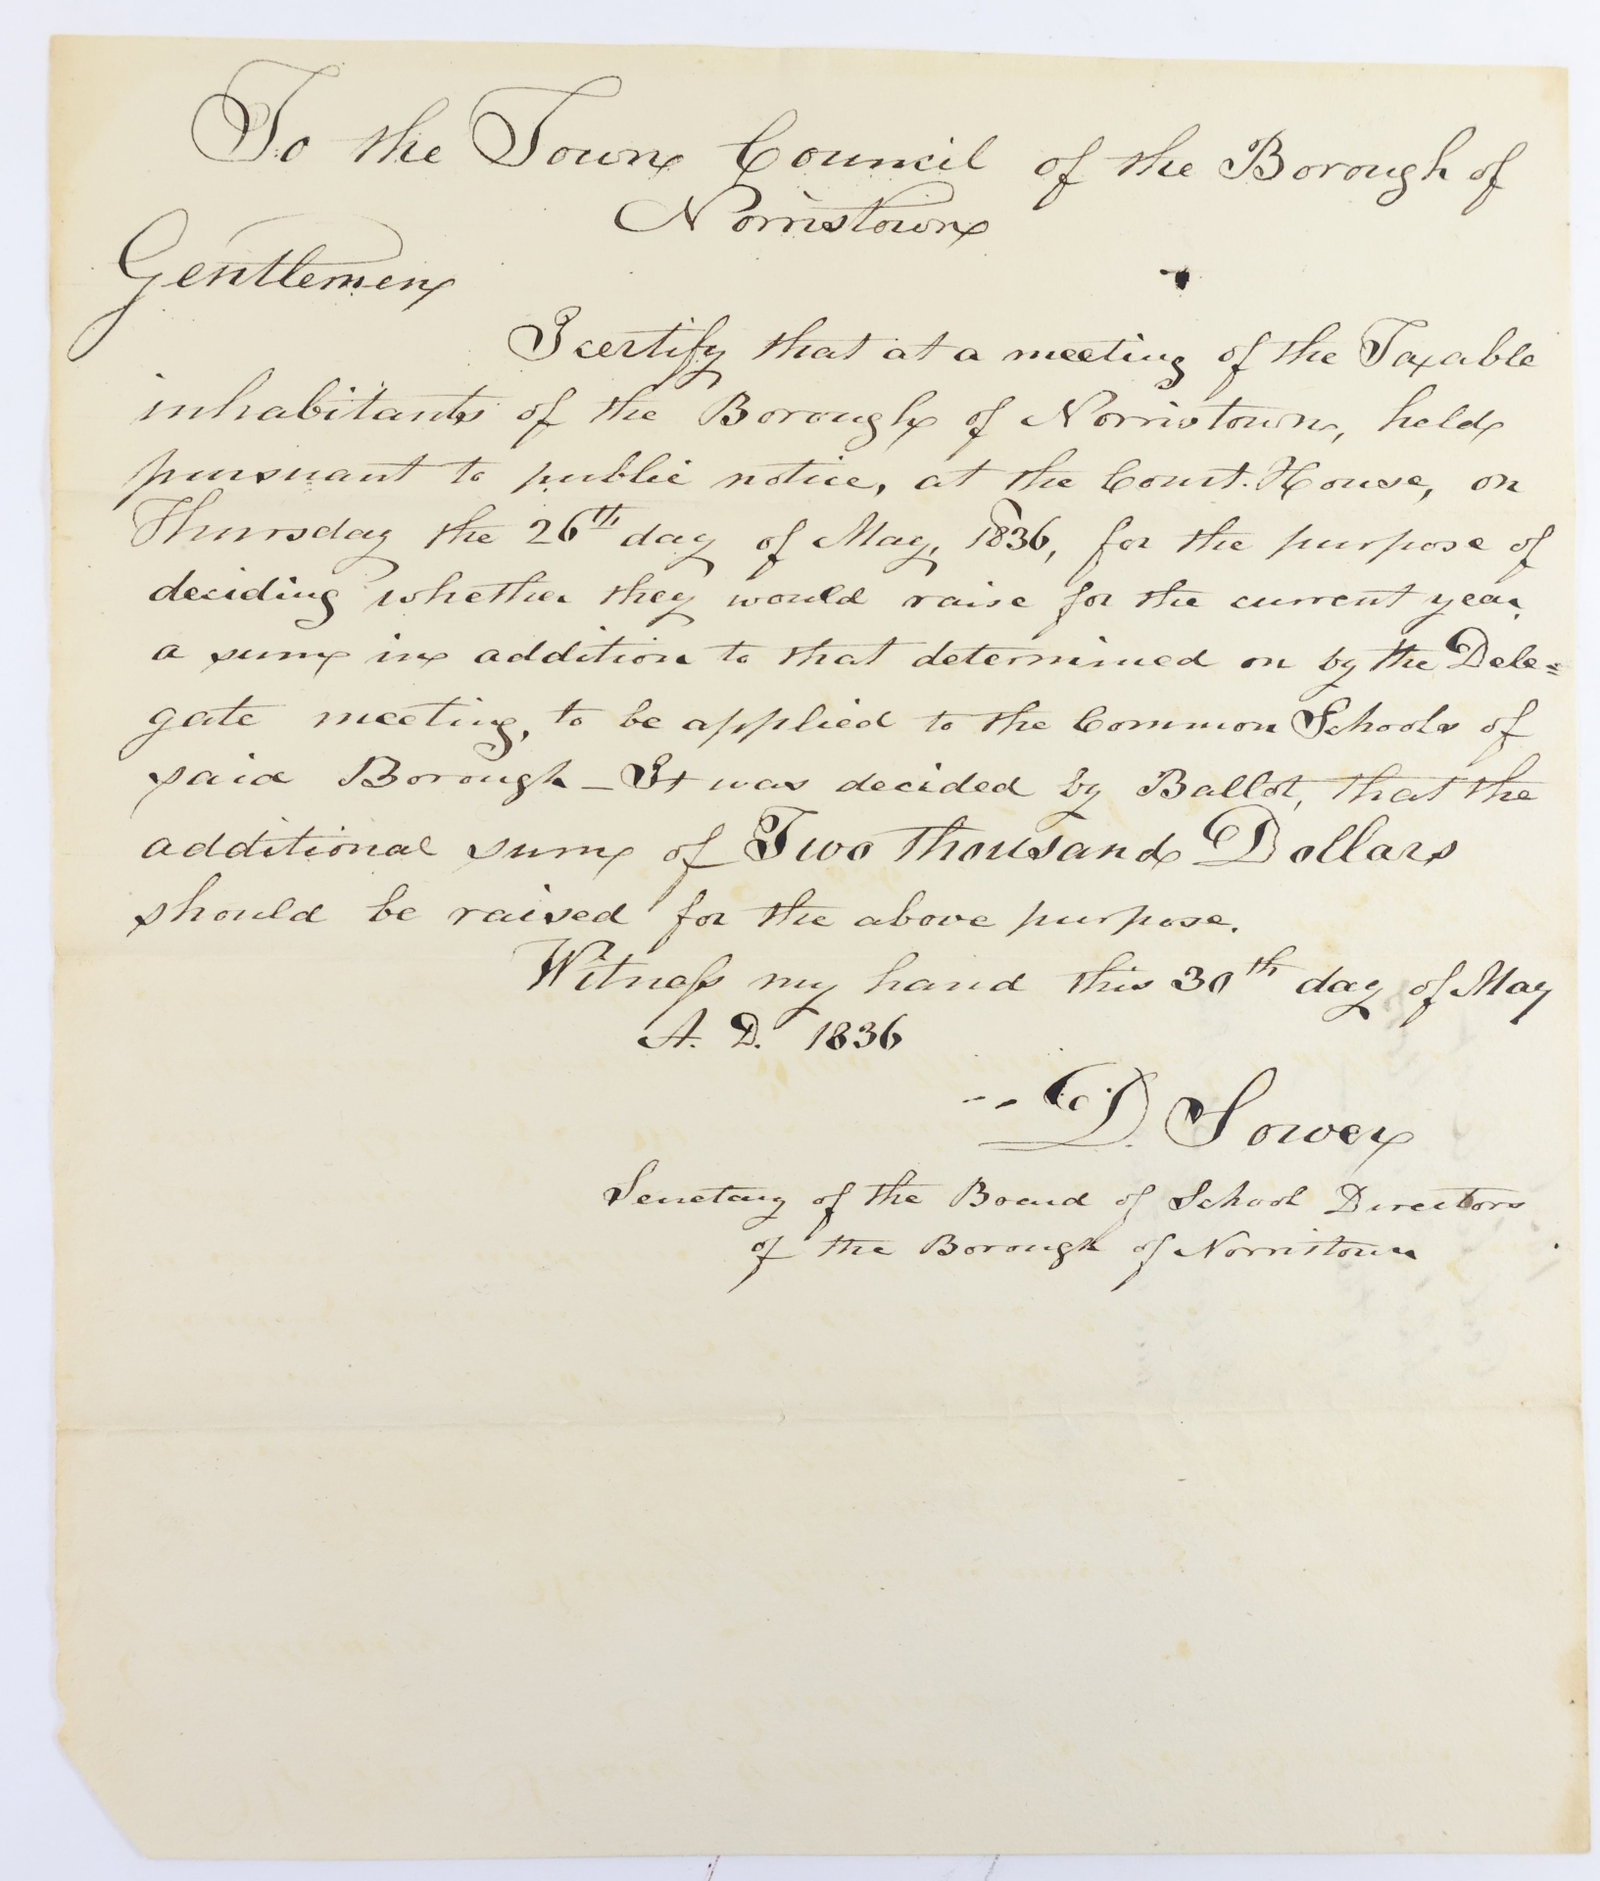 To the Town Council of the Borough of
Norristown
Gentlemen
I certify that at a meeting of the Taxable
inhabitants of the Borough of Norristown, held
pursuant to public notice, at the Court House, on
Thursday the 26th day of May, 1836, for the purpose of
deciding whether they would raise for the current year,
a sum in addition to that determined on by the Dele=
gate meeting, to be applied to the Common Schools of
said Borough – It was decided by Ballot, that the
additional sum of Two thousand Dollars
should be raised for the above purpose.
Witness my hand this 30th day of May
A. D. 1836
D. Sower
Secretary of the Board of School Directors
of the Borough of Norristown